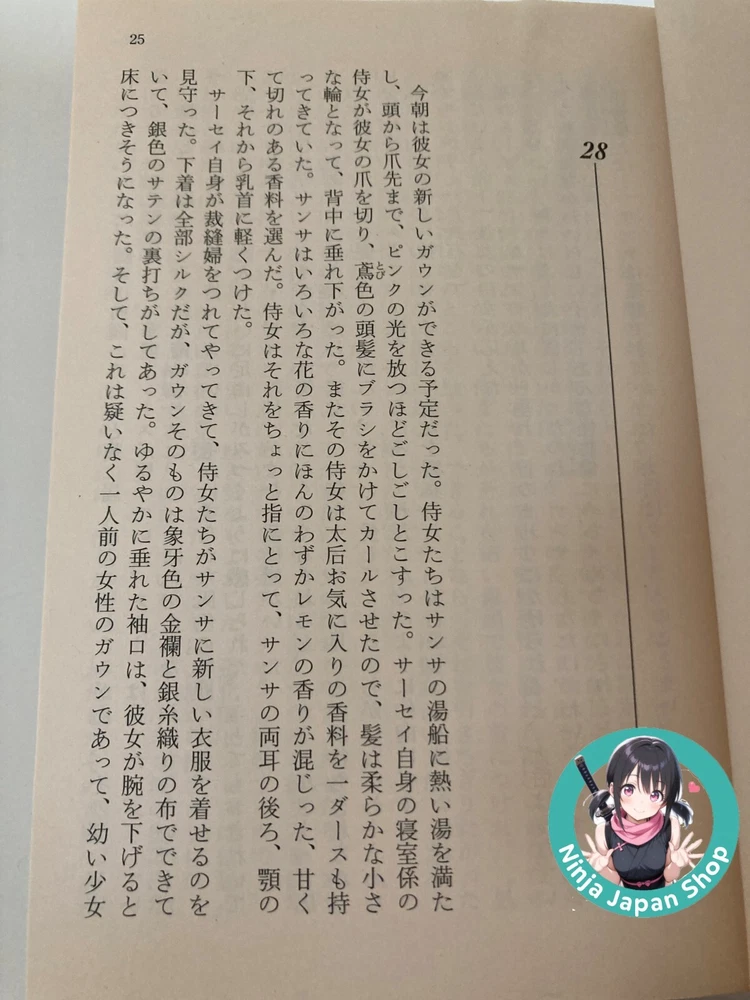 25
28
今朝は彼女の新しいガウンができる予定だった。侍女たちはサンサの湯船に熱い湯を満た
し、頭から爪先まで、ピンクの光を放つほどごしごしとこすった。サーセイ自身の寝室係の
侍女が彼女の爪を切り、鳶色の頭髪にブラシをかけてカールさせたので、髪は柔らかな小さ
とび
な輪となって、背中に垂れ下がった。またその侍女は太后お気に入りの香料を一ダースも持
ってきていた。サンサはいろいろな花の香りにほんのわずかレモンの香りが混じった、甘く
て切れのある香料を選んだ。侍女はそれをちょっと指にとって、サンサの両耳の後ろ、顎の
下、それから乳首に軽くつけた。
サーセイ自身が裁縫婦をつれてやってきて、侍女たちがサンサに新しい衣服を着せるのを
見守った。下着は全部シルクだが、ガウンそのものは象牙色の金襴と銀糸織りの布でできて
いて、銀色のサテンの裏打ちがしてあった。ゆるやかに垂れた袖口は、彼女が腕を下げると
床につきそうになった。そして、これは疑いなく一人前の女性のガウンであって、幼い少女
Ninja Japan Shop